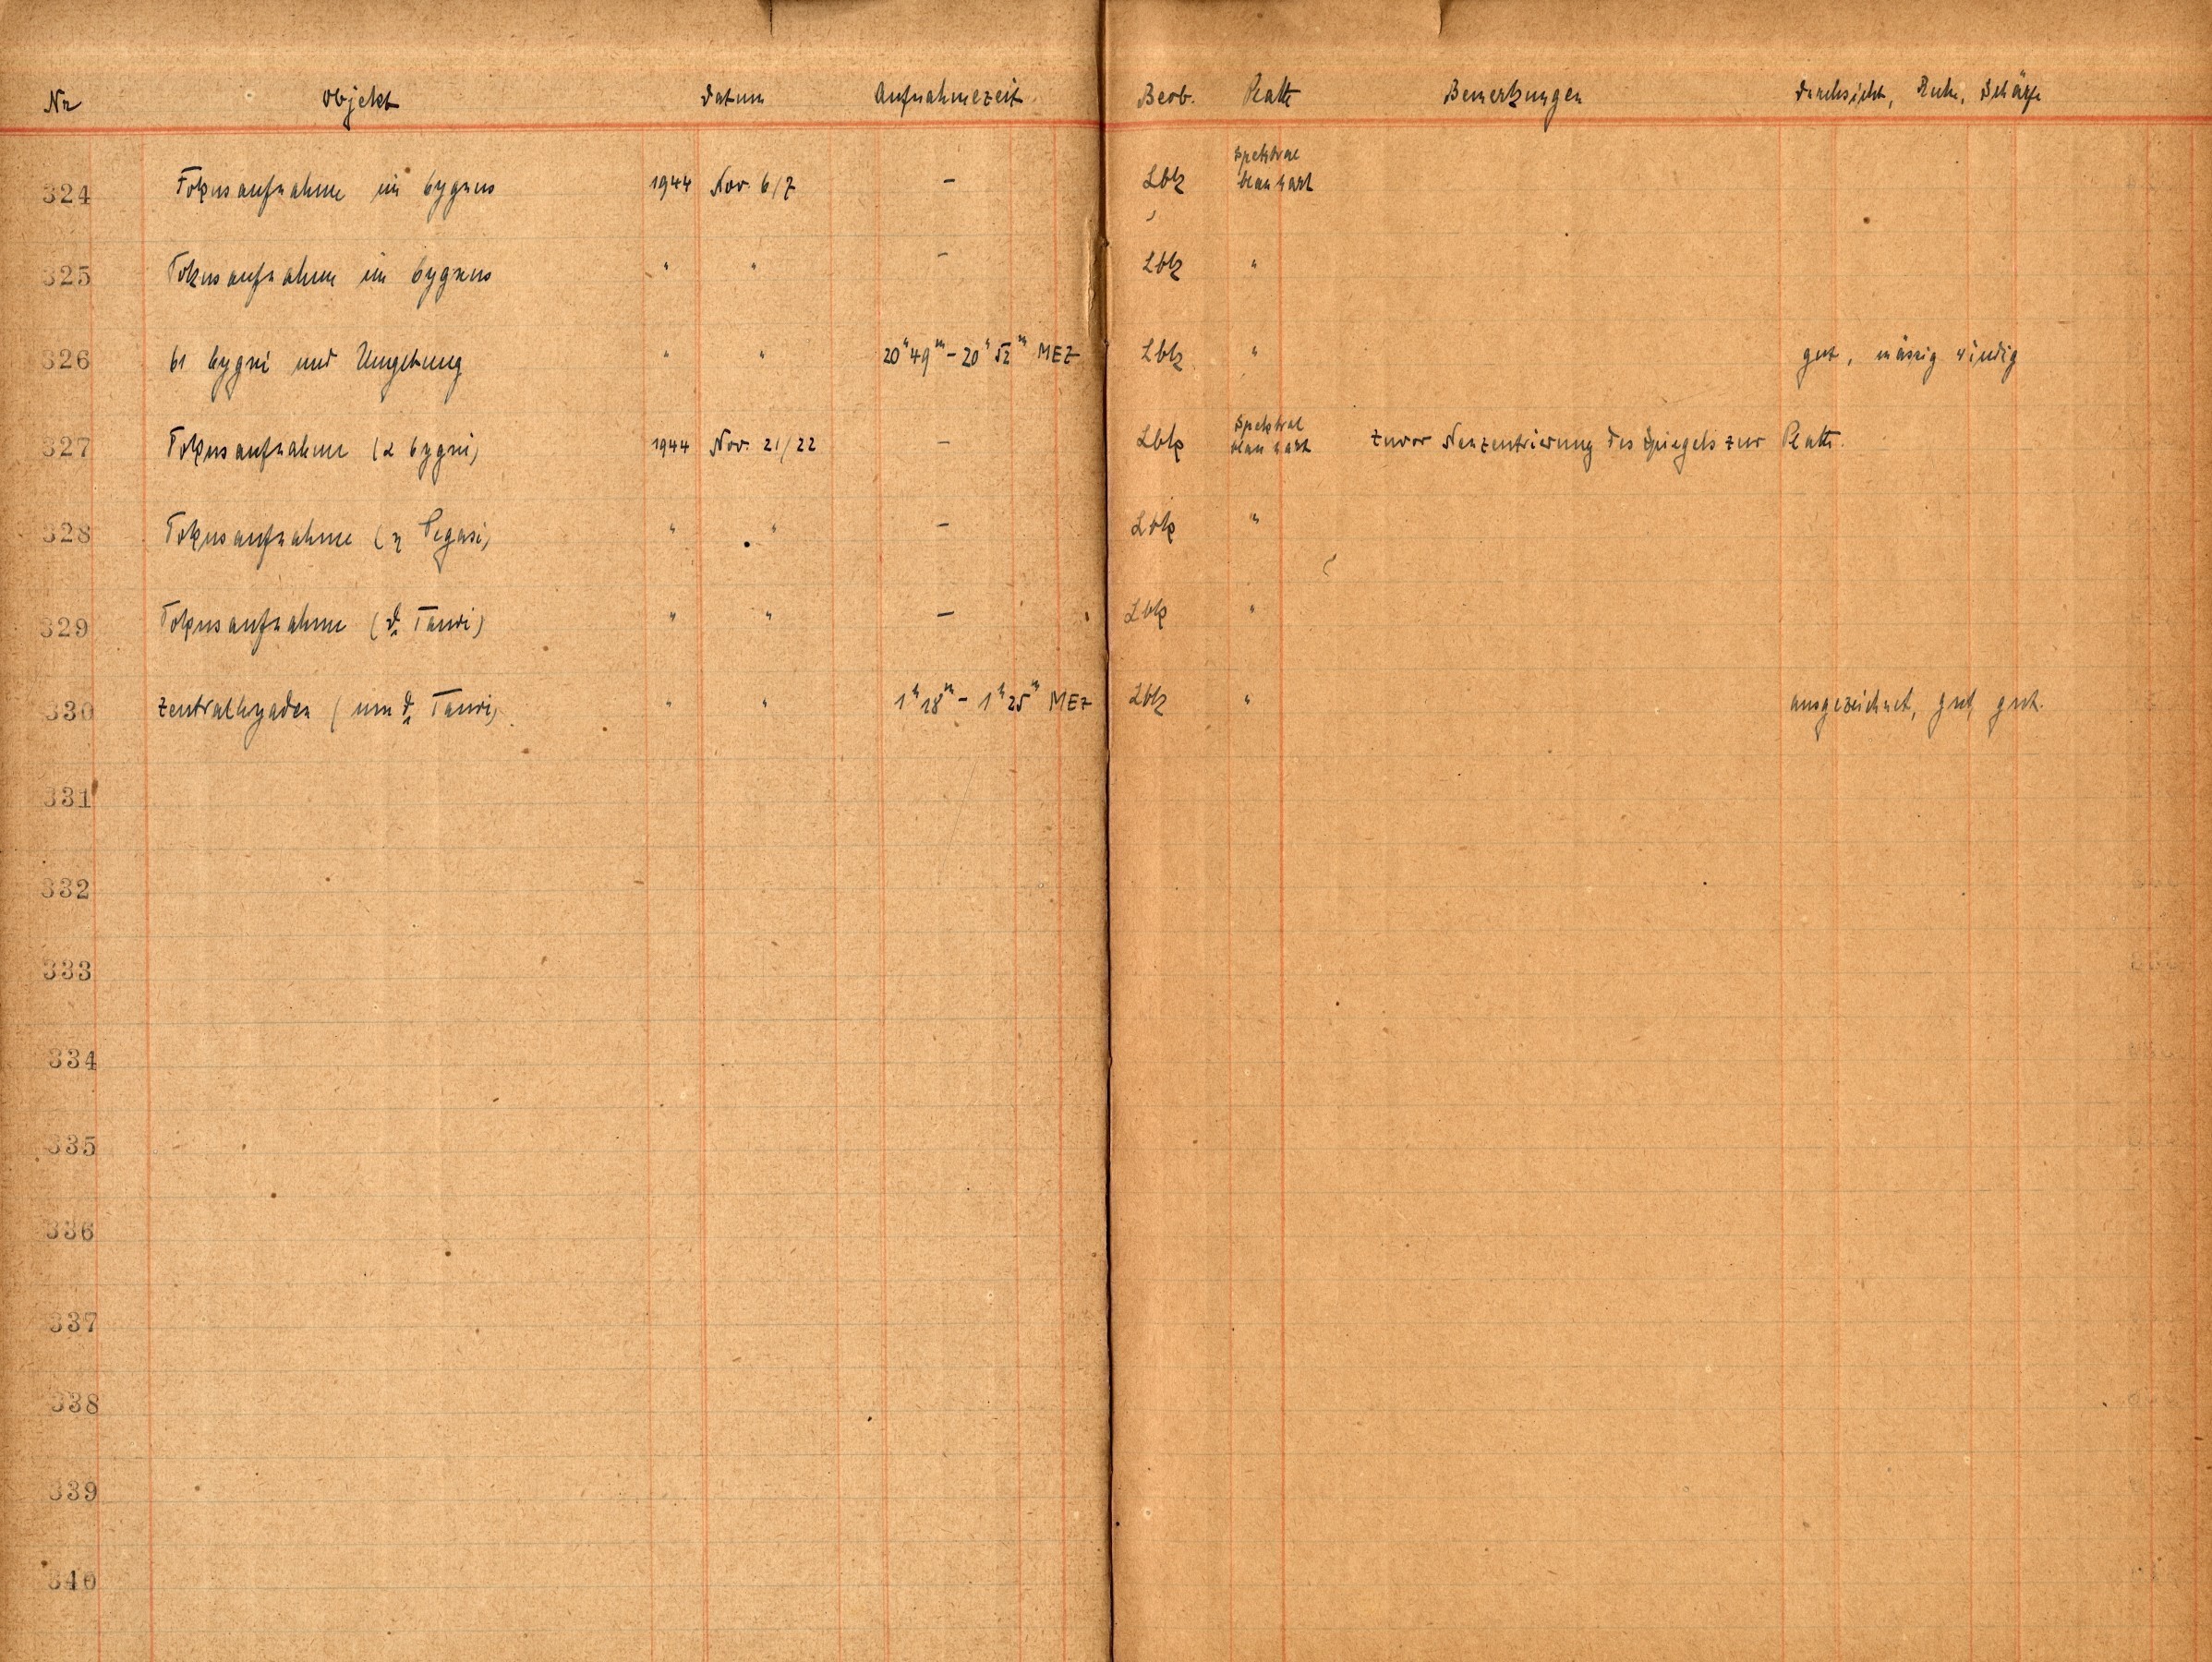 Nr Objekt Datum Aufnahmezeit Beob. Platte Bemerkungen Durchsicht, Ruhe, Schärfe
324 Fokusaufnahme im Cygnus 1944 Nov. 6/7 – Lbk Spektral blau hart
325 Fokusaufnahme im Cygnus " " – Lbk "
326 61 Cygni und Umgebung " " 20h 49m – 20h 52m MEZ Lbk " gut, mässig windig
327 Fokusaufnahme (α Cygni) 1944 Nov. 21/22 – Lbk Spektral blau hart Zuvor Neuzentrierung des Spiegels zur Platte.
328 Fokusaufnahme (η Pegasi) " " – Lbk "
329 Fokusaufnahme (ϑ Tauri) " " – Lbk "
330 Zentralhyaden (um ϑ Tauri) " " 1h 18m – 1h 25m MEZ Lbk " ausgezeichnet, gut, gut.
331
332
333
334
335
336
337
338
339
340